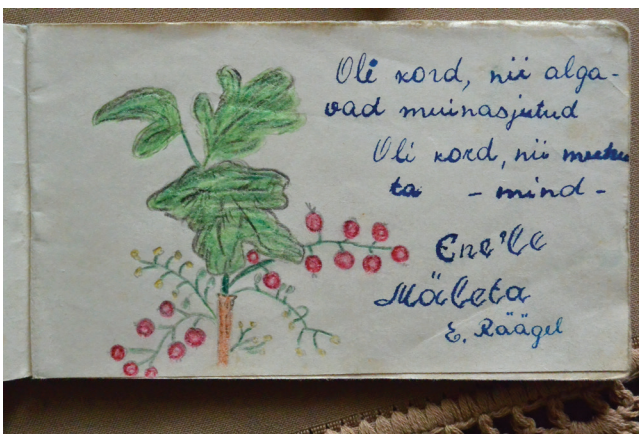 Oli kord, nii alga-
vad muinasjutud
Oli kord, nii
ta - mind -
Ene'le
Mäleta
E. Räägel